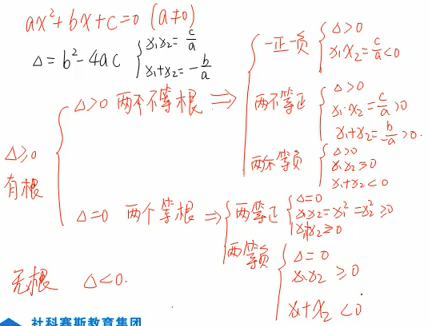 ax²+bx+c=0 (a≠0)
Δ=b²-4ac { x₁x₂=c/a
x₁+x₂=-b/a
Δ≥0
有根
Δ>0 两不等根 ⇒
一正一负 { Δ>0
x₁x₂=c/a<0
两不等正 { Δ>0
x₁·x₂=c/a>0
x₁+x₂=b/a>0.
两不等负 { Δ>0
x₁x₂≥0
x₁+x₂<0
Δ=0 两个等根 ⇒
两等正 { Δ=0
x₁x₂=x₁²=x₂²≥0
x₁x₂≥0
两等负 { Δ=0
x₁x₂≥0
x₁+x₂<0
无根 Δ<0.
社科赛斯教育集团